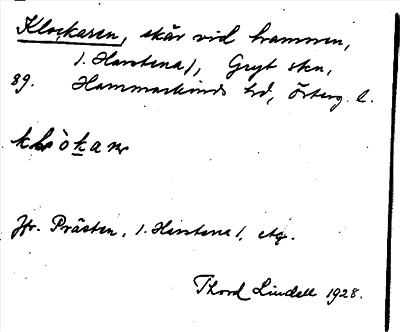 Klockaren, skär vid hamnen,
/. Harstena /, Gryt skn,
89. Hammarkinds hd, Österg. l.
Jfr. Prästen, /. Harstena /, etg.
Thord Lindell 1928.